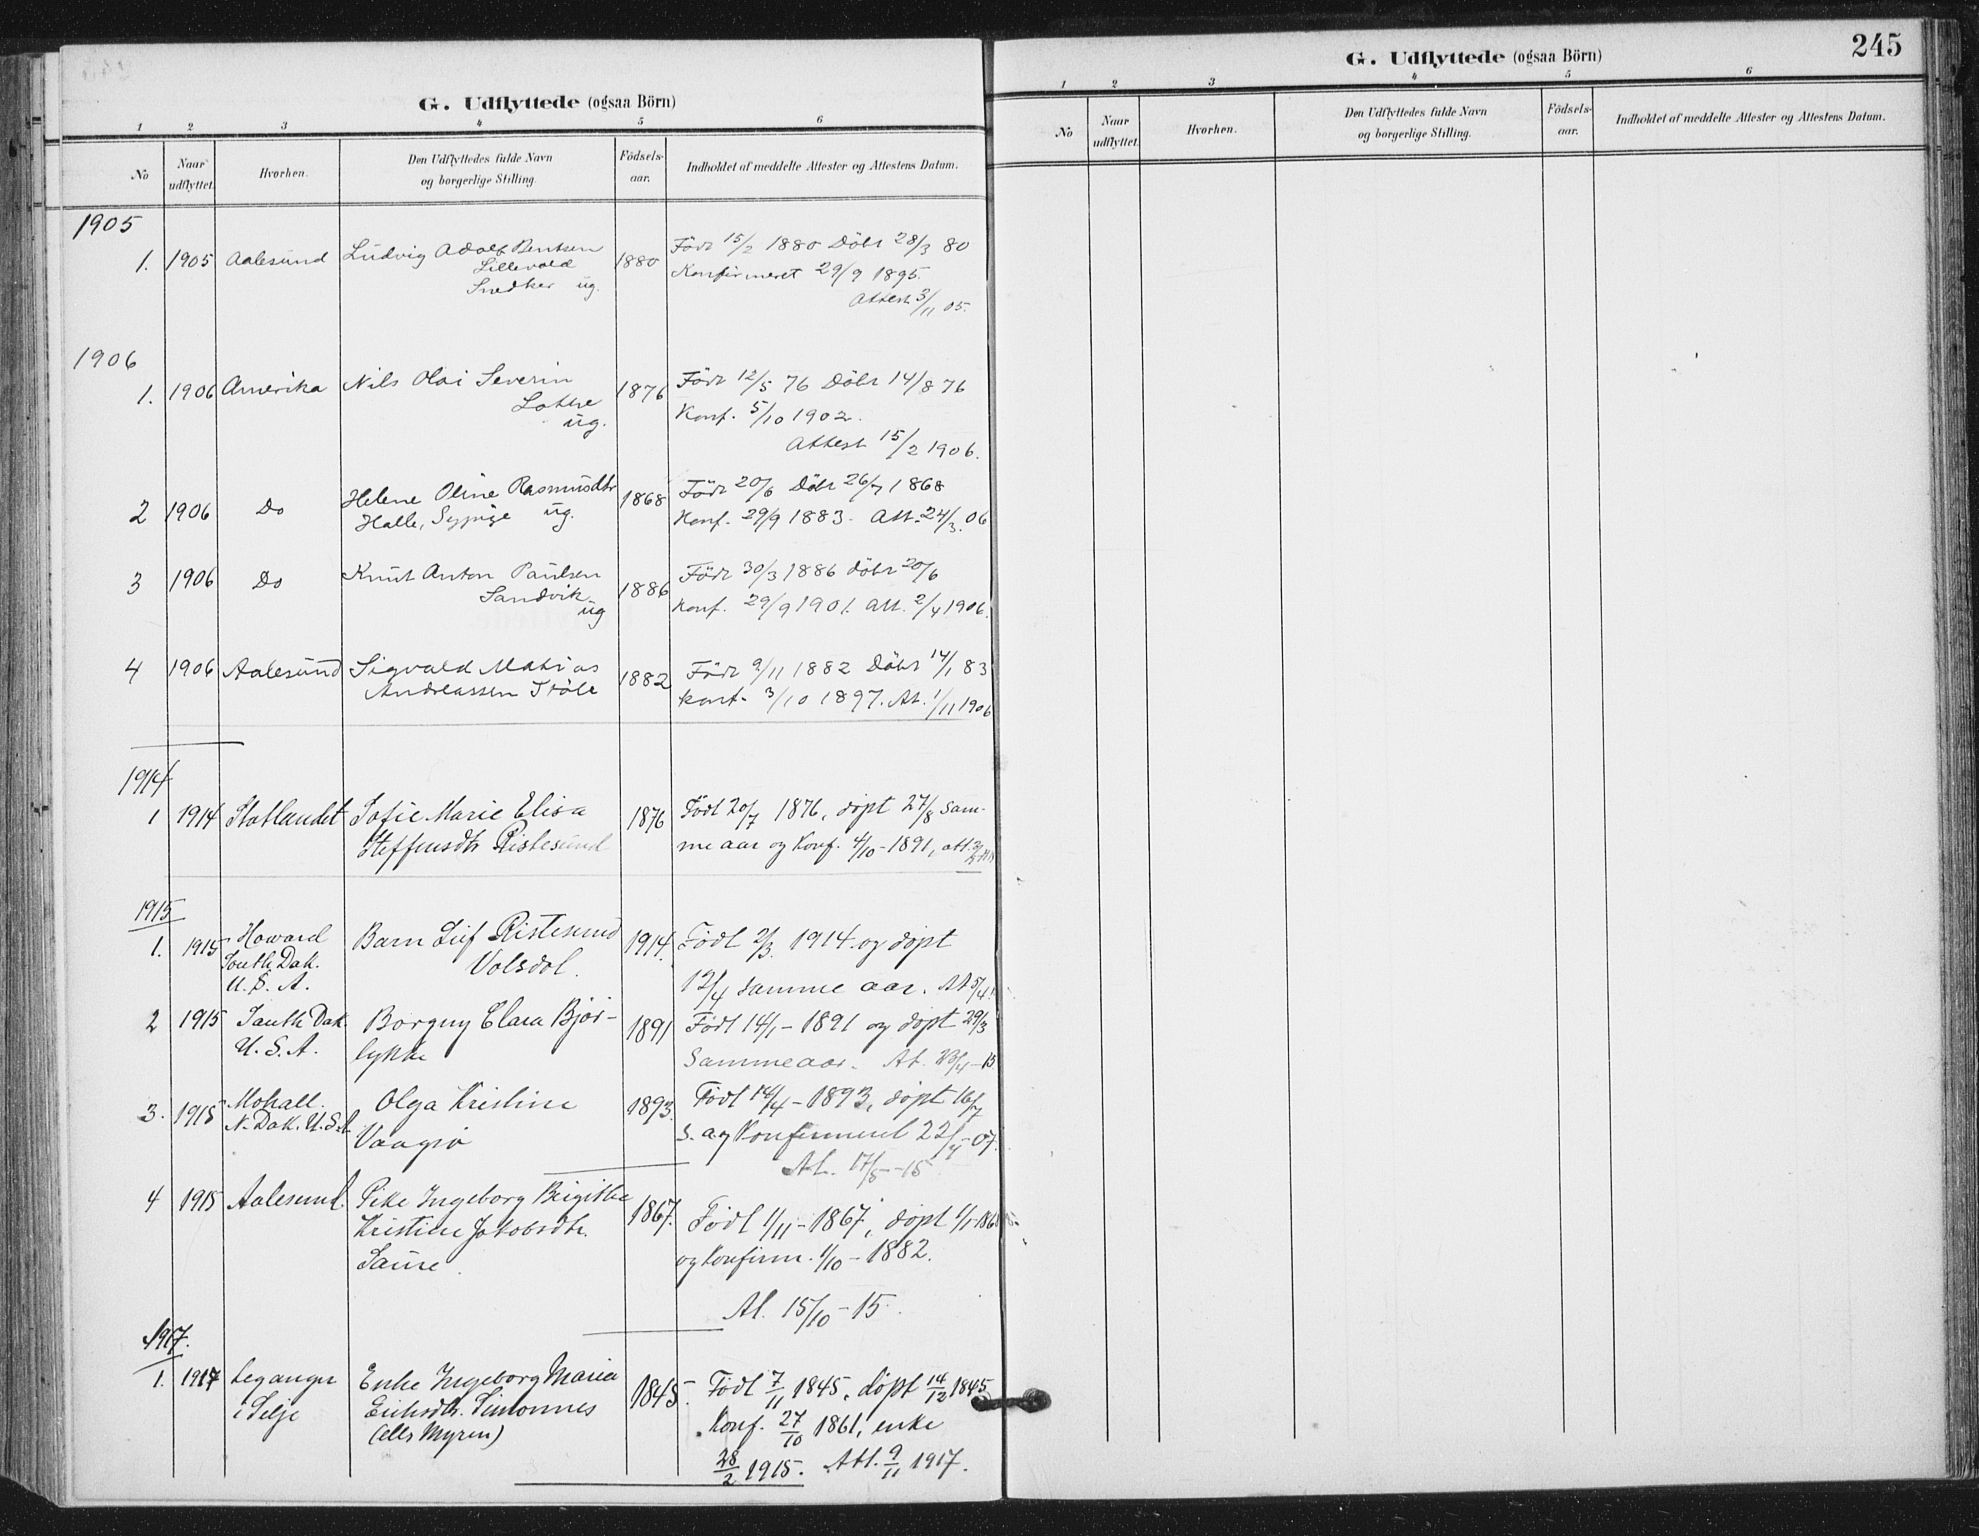 G. Udflyttede (ogsaa Börn)
1 2 3 4 5 6
No
Naar udflyttet.
Hvorhen.
Den Udflyttedes fulde Navn og borgerlige Stilling.
Födsels-aar.
Indholdet af meddelte Attester og Attestens Datum.
1905
1. 1905 Aalesund Ludvig Adolf Bentsen 1880 Föd 15/2 1880 Döbt 28/3 80
Lillevold Konfirmeret 29/9 1895.
Snedker ug. Attest 3/11 05.
1906
1. 1906 Amerika Nils Olai Severin 1876 Föd 12/5 76 Döbt 14/8 76
ug. Konf. 5/10 1902.
Attest 15/2 1906.
2 1906 Do Helene Oline Rasmusdtr 1868 Föd 20/6 Döbt 26/7 1868
Halle, Sypige ug. Konf. 29/9 1883. Att. 24/3 06
3 1906 Do Knut Anton Paulsen 1886 Föd 30/3 1886 döbt 20/6
Sandvik Konf. 29/9 1901. Att. 2/4 1906.
ug
4 1906 Aalesund Sigvald Matias 1882 Föd 9/11 1882 Döbt 14/1 83
Andreassen konf. 3/10 1897. At. 1/11 1906
1914
1 1914 Statlandet Sofie Marie Elisa 1876 Födt 20/7 1876, döpt 27/8 sam-
Steffensdtr Ristesund me aar og konf. 4/10-1891, att.
1915
1. 1915 Howard South Dak. U.S.A. Barn Leif Ristesund 1914. Födt 2/3 1914. og döpt
Volsdal. 12/4 samme aar. At
2 1915 South Dak. U.S.A. Borgny Clara Bjør- 1891 Födt 14/1-1891 og döpt 29/3
lykke Samme aar. At. 13/4-15
3. 1915 Mohall. N. Dak. U.S.A. Olga Kristine 1893. Födt 14/4-1893, döpt 16/7
Vaagsø s. a. og Konfirmeret 22/9-07.
At. 17/5-15
4 1915 Aalesund. Pike Ingeborg Birgitha 1867. Födt 1/11-1867, döpt 1/1-1868
Kristine Jakobsdtr. og konfirm. 1/10-1882.
Saure
At. 15/10-15.
1917.
1. 1917 Leganger i Selje Enke Ingeborg Maria 1845. Födt 7/11 1845, döpt 14/12 1845
Eriksdtr. Simonnes Konf. 27/10 1861, enke
(alls Myren) 28/2 1915. Att. 9/11 1917.
G. Udflyttede (ogsaa Börn)
245
1 2 3 4 5 6
No
Naar udflyttet.
Hvorhen.
Den Udflyttedes fulde Navn og borgerlige Stilling.
Födsels-aar.
Indholdet af meddelte Attester og Attestens Datum.